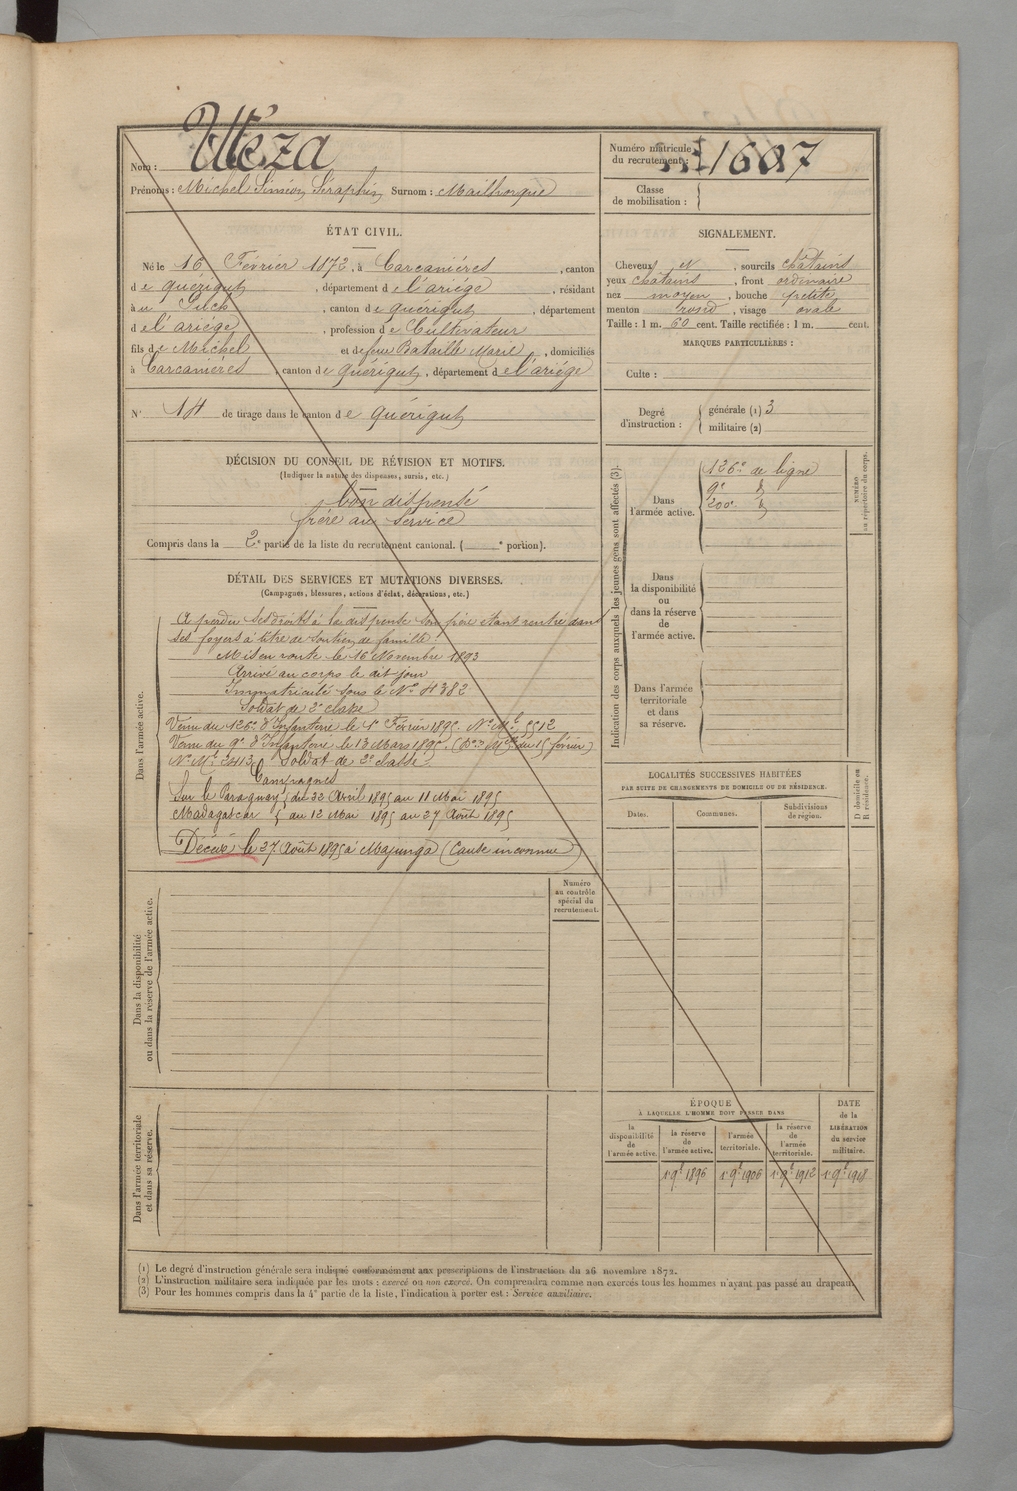 Nom : Utéza
Numéro matricule du recrutement : 1607
Prénoms : Michel Siméon Séraphin Surnom : Mailhorque
Classe de mobilisation :
ÉTAT CIVIL.
Né le 16 Février 1872, à Carcanières, canton
de quérigut, département de l'ariége, résidant
à au Puch, canton de quérigut, département
de l'ariége, profession de Cultivateur
fils de Michel et de feue Bataille Marie, domiciliés
à Carcanières, canton de quérigut, département de l'ariége
N° 14 de tirage dans le canton de quérigut
DÉCISION DU CONSEIL DE RÉVISION ET MOTIFS.
(Indiquer la nature des dispenses, sursis, etc.)
bon dispensé
frère au service
Compris dans la 2e partie de la liste du recrutement cantonal. ( e portion).
DÉTAIL DES SERVICES ET MUTATIONS DIVERSES.
(Campagnes, blessures, actions d'éclat, décorations, etc.)
Dans l'armée active.
A perdu ses droits à la dispense son frère étant rentré dans
ses foyers à titre de soutien de famille.
Mis en route le 16 Novembre 1893
Arrivé au corps le dit jour
Immatriculé sous le No 4382
Soldat de 2e classe
Venu du 126e d'Infanterie le 1er Février 1895. No Mle 5512
Venu du 9e d'Infanterie le 13 Mars 1895. ( Mlle du 15 février)
No Mle 2413 Soldat de 2e classe.
Campagnes
Sur le Paraguay { du 22 Avril 1895 au 11 Mai 1895
Madagascar { du 12 Mai 1895 au 27 Août 1895
Décédé le 27 Août 1895 à Majunga (Cause inconnue)
Dans la disponibilité
ou dans la réserve de l'armée active.
Numéro
au contrôle
spécial du
recrutement.
Dans l'armée territoriale
et dans sa réserve.
SIGNALEMENT.
Cheveux et, sourcils châtains
yeux châtains, front ordinaire
nez moyen, bouche petite
menton rond, visage ovale
Taille : 1 m. 60 cent. Taille rectifiée : 1 m. cent.
MARQUES PARTICULIÈRES :
Culte :
Degré d'instruction :
générale (1) 3
militaire (2)
Indication des corps auxquels les jeunes gens sont affectés (3).
Dans
l'armée active.
126e de ligne
9e d°
200e d°
NUMÉRO
au répertoire du corps.
Dans
la disponibilité
ou
dans la réserve
de
l'armée active.
Dans l'armée
territoriale
et dans
sa réserve.
LOCALITÉS SUCCESSIVES HABITÉES
PAR SUITE DE CHANGEMENTS DE DOMICILE OU DE RÉSIDENCE.
Dates.
Communes.
Subdivisions
de région.
D domicile ou
R résidence.
ÉPOQUE
À LAQUELLE L'HOMME DOIT PASSER DANS
la
disponibilité
de
l'armée active.
la réserve
de
l'armée active.
l'armée
territoriale.
la réserve
de
l'armée
territoriale.
DATE
de la
LIBÉRATION
du service
militaire.
1er 9bre 1896
1er 9bre 1906
1er 9bre 1912
1er 9bre 1918
(1) Le degré d'instruction générale sera indiqué conformément aux prescriptions de l'instruction du 26 novembre 1872.
(2) L'instruction militaire sera indiquée par les mots : exercé ou non exercé. On comprendra comme non exercés tous les hommes n'ayant pas passé au drapeau.
(3) Pour les hommes compris dans la 4e partie de la liste, l'indication à porter est : Service auxiliaire.